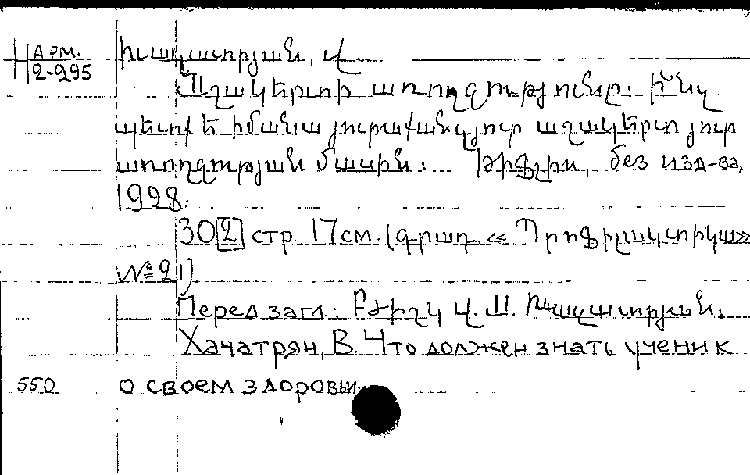 Арм.
2-295
Խաչատրյան, Վ
Աշակերտի առողջությունը. Ի՞նչ
պետք է իմանա յուրաքանչյուր աշակերտ յուր
առողջության մասին: Թիֆլիս, без изд-ва,
1928.
30[2] стр. 17см. (գրադ «Պրոֆիլակտիկա»
№21)
Перед загл.: Բժիշկ Վ. Ա. Խաչատրյան.
Хачатрян, В. Что должен знать ученик
550 о своем здоровьи